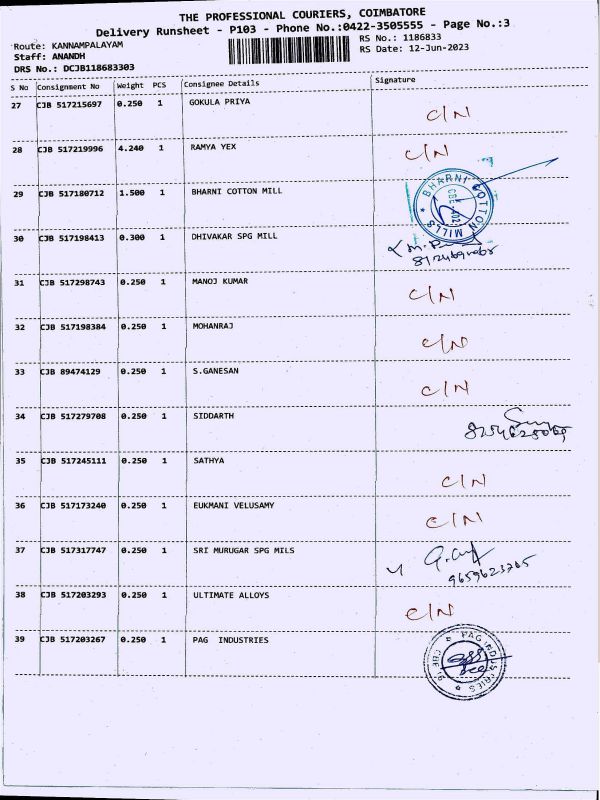 THE PROFESSIONAL COURIERS, COIMBATORE
Delivery Runsheet - P103 - Phone No.:0422-3505555 - Page No.:3
Route: KANNAMPALAYAM
RS No.: 1186833
Staff: ANANDH
RS Date: 12-Jun-2023
DRS No.: DCJB118683303
S No Consignment No Weight PCS Consignee Details Signature
27 CJB 517215697 0.250 1 GOKULA PRIYA C/N
28 CJB 517219996 4.240 1 RAMYA YEX C/N
29 CJB 517180712 1.500 1 BHARNI COTTON MILL
BHARNI COTTON MILLS
30 CJB 517198413 0.300 1 DHIVAKAR SPG MILL
31 CJB 517298743 0.250 1 MANOJ KUMAR C/N
32 CJB 517198384 0.250 1 MOHANRAJ C/N
33 CJB 89474129 0.250 1 S.GANESAN C/N
34 CJB 517279708 0.250 1 SIDDARTH
35 CJB 517245111 0.250 1 SATHYA C/N
36 CJB 517173240 0.250 1 EUKMANI VELUSAMY C/N
37 CJB 517317747 0.250 1 SRI MURUGAR SPG MILS
9659623765
38 CJB 517203293 0.250 1 ULTIMATE ALLOYS C/N
39 CJB 517203267 0.250 1 PAG INDUSTRIES
PAG INDUSTRIES